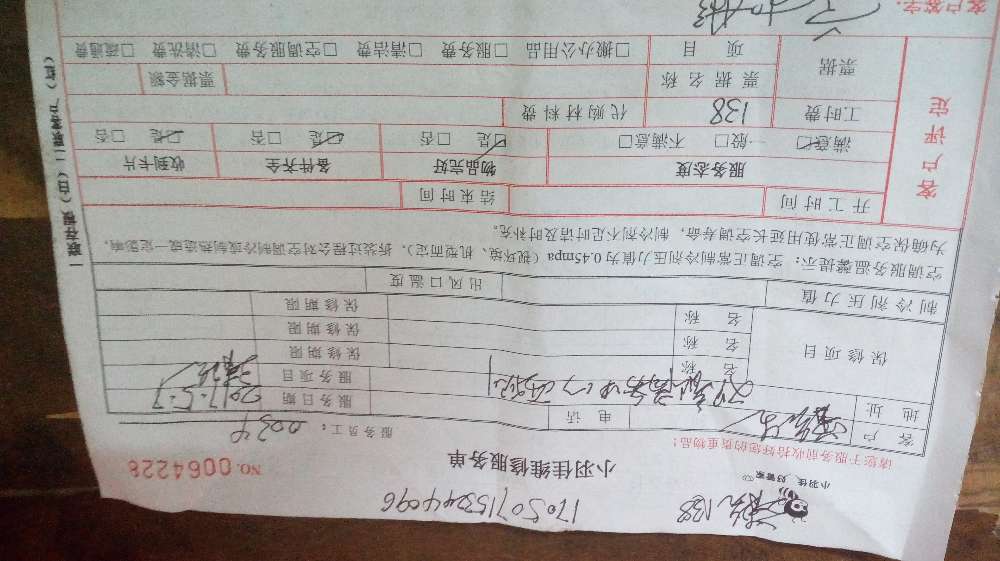 138 17050715344096
小羽佳，好管家
小羽佳维修服务单
NO. 0064228
请您于服务前收拾好您的贵重物品！
服务员工：0034
客户 电话 服务日期 2017.5.7
地址 服务项目
保修项目 名称 保修期限
名称 保修期限
名称 保修期限
制冷剂压力值 出风口温度
空调服务温馨提示：空调正常制冷剂压力值为0.45mpa（视环境、机型而定），拆装过程会对空调制冷或制热造成一定影响，
为确保空调正常使用延长空调寿命，制冷剂不足时请及时补充。
客户评定
开工时间 结束时间
服务态度 物品完好 备件齐全 收到卡片
满意☑ 一般□ 不满意□ 是☑ 否□ 是☑ 否□ 是☑ 否□
工时费 138 代购材料费
票据 票据名称 票据金额
项目 □搬办公用品 □服务费 □清洁费 □空调服务费 □清洗费 □疏通费
客户签字：
一联存根（白）二联客户（红）